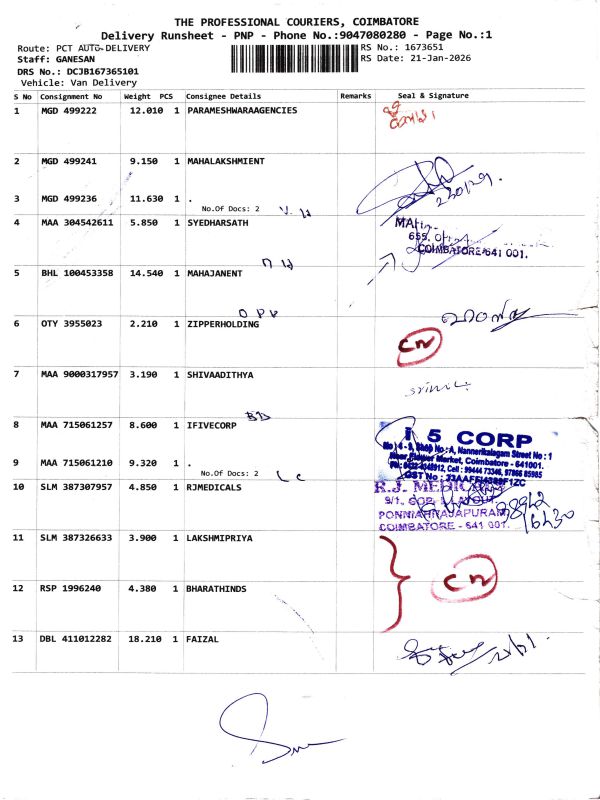 THE PROFESSIONAL COURIERS, COIMBATORE
Delivery Runsheet - PNP - Phone No.:9047080280 - Page No.:1
Route: PCT AUTO-DELIVERY
RS No.: 1673651
Staff: GANESAN
RS Date: 21-Jan-2026
DRS No.: DCJB167365101
Vehicle: Van Delivery
S No Consignment No Weight PCS Consignee Details Remarks Seal & Signature
1 MGD 499222 12.010 1 PARAMESHWARAAGENCIES
2 MGD 499241 9.150 1 MAHALAKSHMIENT
3 MGD 499236 11.630 1 .
No.Of Docs: 2
4 MAA 304542611 5.850 1 SYEDHARSATH
655,
COIMBATORE-641 001.
5 BHL 100453358 14.540 1 MAHAJANENT
6 OTY 3955023 2.210 1 ZIPPERHOLDING
CN
7 MAA 9000317957 3.190 1 SHIVAADITHYA
8 MAA 715061257 8.600 1 IFIVECORP
i 5 CORP
No : 4 - 5, Shop No : A, Nannerikalagam Street No : 1
Near Flower Market, Coimbatore - 641001.
9 MAA 715061210 9.320 1 .
No.Of Docs: 2
10 SLM 387307957 4.850 1 RJMEDICALS
R.J. MEDICALS
PONNIAHRAJAPURAM
COIMBATORE - 641 001.
11 SLM 387326633 3.900 1 LAKSHMIPRIYA
CN
12 RSP 1996240 4.380 1 BHARATHINDS
13 DBL 411012282 18.210 1 FAIZAL